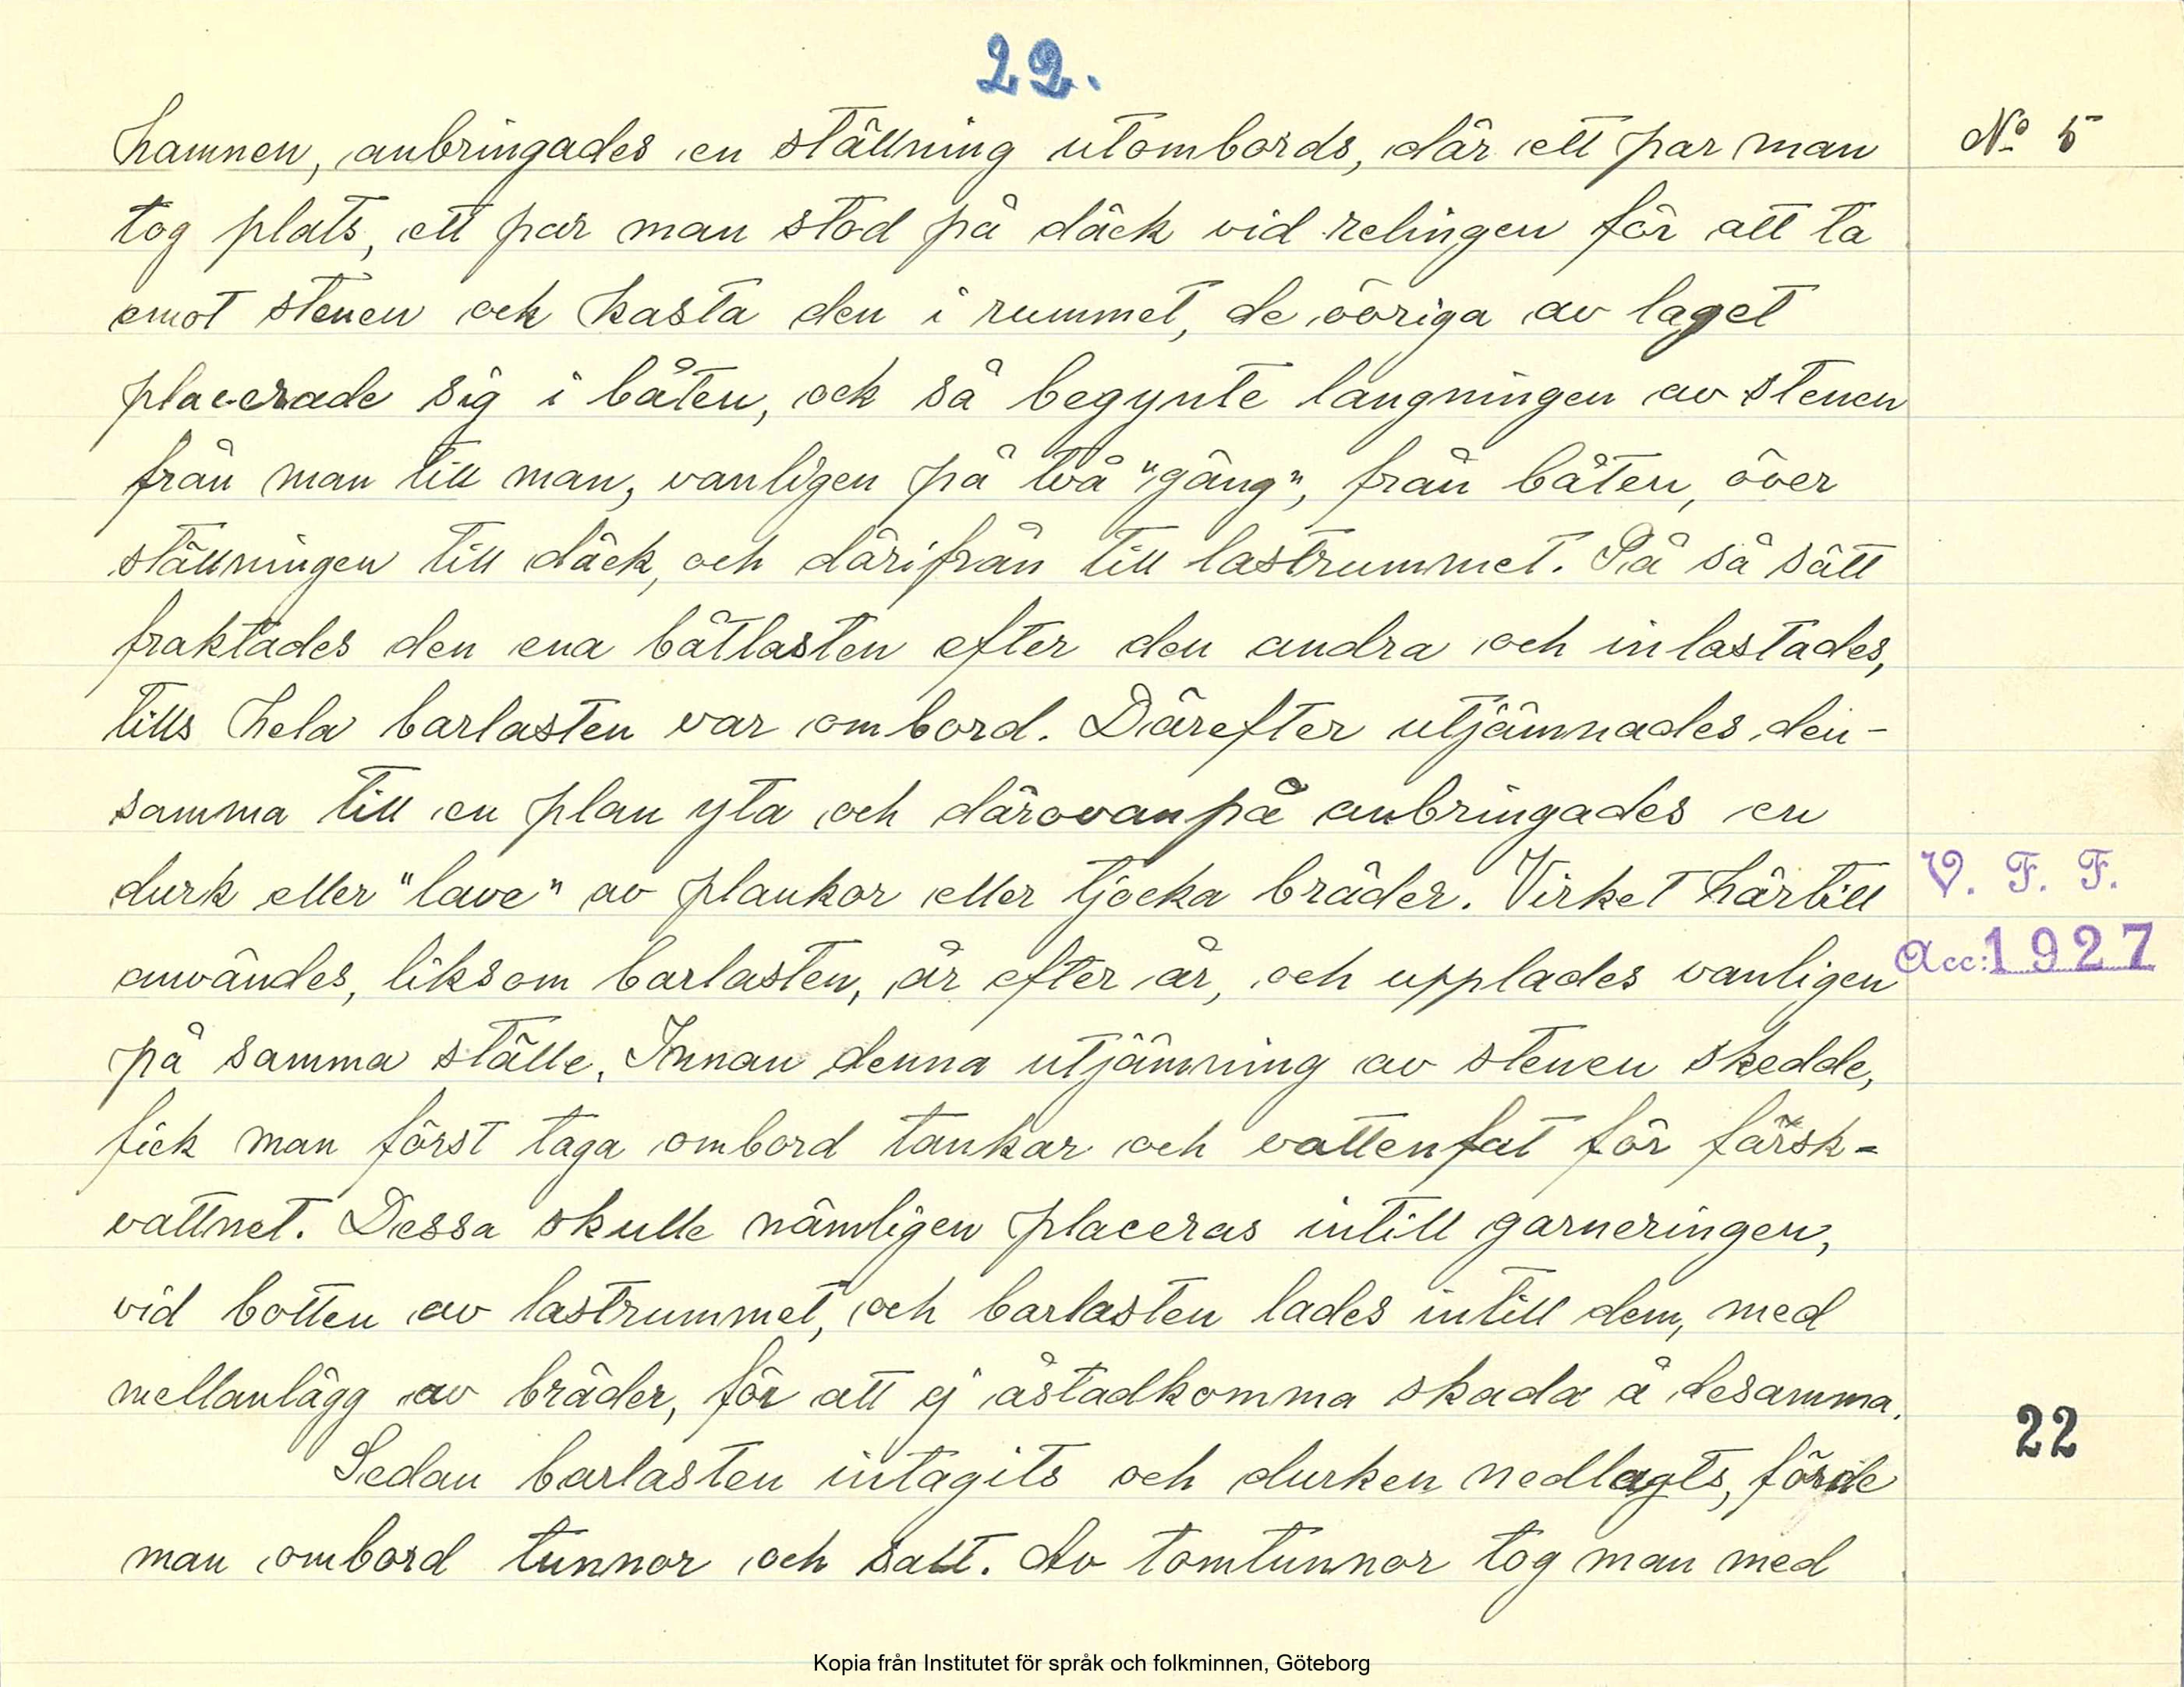 22.
hamnen, anbringades en ställning utombords, där ett par man
No 5
tog plats, ett par man stod på däck vid relingen för att ta
emot stenen och kasta den i rummet, de övriga av laget
placerade sig i båten, och så begynte langningen av stenen
från man till man, vanligen på två "gäng", från båten, över
ställningen till däck, och därifrån till lastrummet. På så sätt
fraktades den ena båtlasten efter den andra och inlastades,
tills hela barlasten var ombord. Därefter utjämnades den-
samma till en plan yta och därovanpå anbringades en
durk eller "lave" av plankor eller tjocka bräder. Virket härtill
V. F. F.
användes, liksom barlasten, år efter år, och upplades vanligen
Acc: 1927
på samma ställe. Innan denna utjämning av stenen skedde,
fick man först taga ombord tankar och vattenfat för färsk-
vattnet. Dessa skulle nämligen placeras intill garneringen,
vid botten av lastrummet, och barlasten lades intill dem, med
mellanlägg av bräder, för att ej åstadkomma skada å desamma.
22
Sedan barlasten intagits och durken nedlagts, förde
man ombord tunnor och salt. Av tomtunnor tog man med
Kopia från Institutet för språk och folkminnen, Göteborg